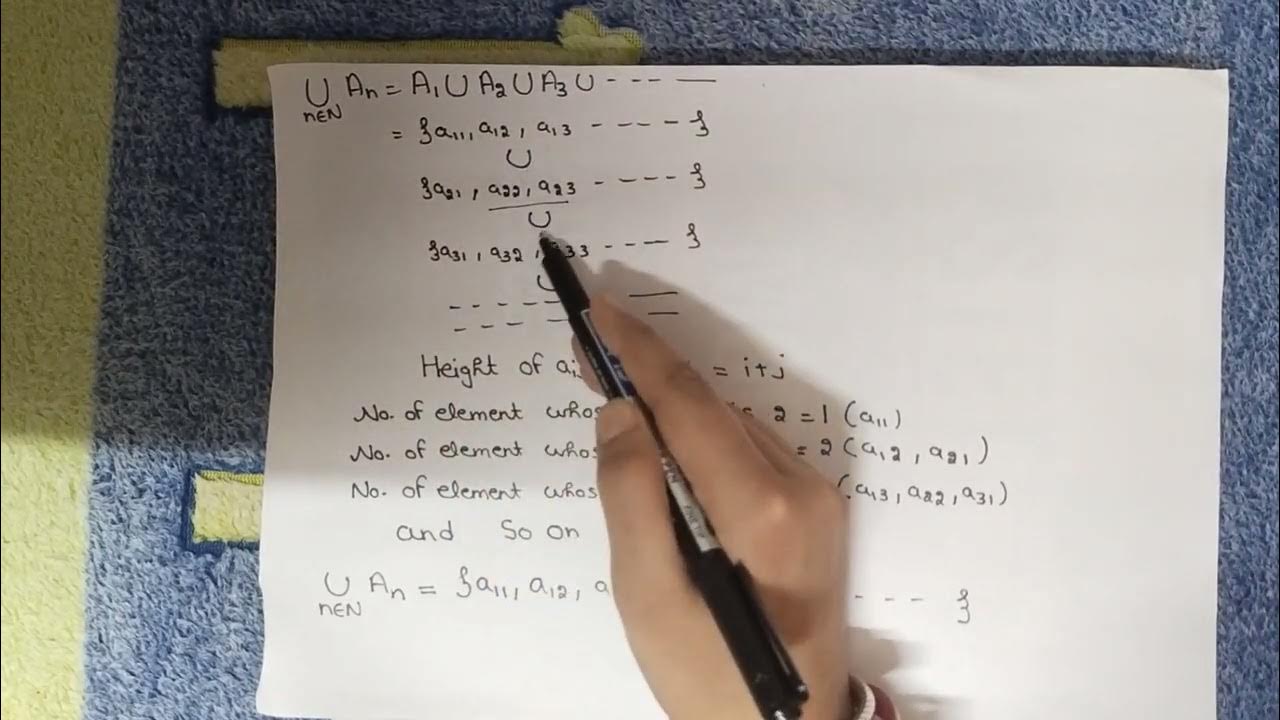 ⋃ Aₙ = A₁ ∪ A₂ ∪ A₃ ∪ - - - —
n∈N
= {a₁₁, a₁₂, a₁₃ - - - - - }
∪
{a₂₁, a₂₂, a₂₃ - - - - - }
∪
{a₃₁, a₃₂, ₃₃ - - - — }
∪
- - - - - —
- - - - —
Height of a = i+j
No. of element 2 = 1 (a₁₁)
No. of element = 2 (a₁₂, a₂₁)
No. of element (a₁₃, a₂₂, a₃₁)
and So on
⋃ Aₙ = {a₁₁, a₁₂, a - - - }
n∈N